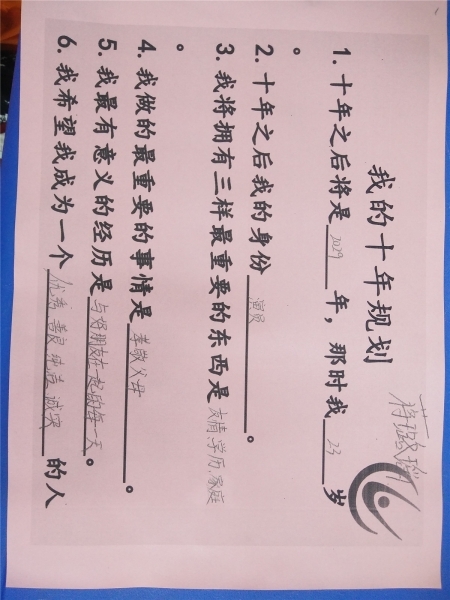 我的十年规划
1.十年之后将是2029年，那时我23岁
。
2.十年之后我的身份演员。
3.我将拥有三样最重要的东西是友情、学历、家庭
。
4.我做的最重要的事情是孝敬父母。
5.我最有意义的经历是与好朋友在一起的每一天。
6.我希望我成为一个优秀,善良,纯洁,诚实的人